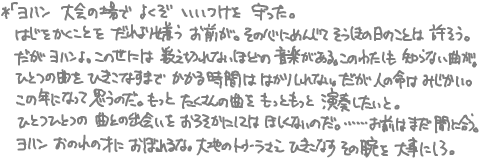 *「ヨハン 大会の場で よくぞ いいつけを 守った。
はじをかくことを だれより嫌う お前が。その心にめんじて そうほの日のことは 許ろう。
だが ヨハンよ。この世には 数え切れないほどの 音楽がある。このわたしも 知らない曲が。
ひとつの曲を ひきこなすまで かかる時間は はかりしれない。だが人の命は みじかい。
この年になって 思うのだ。もっと たくさんの曲を もっともっと 演奏したいと。
ひとつひとつの 曲との出会いを おろそかにしては ほしくないのだ。……お前は まだ 間に合う。
ヨハン おのれの才に おぼれるな。大地のトケーラさえ ひきこなす その腕を 大事にしろ。